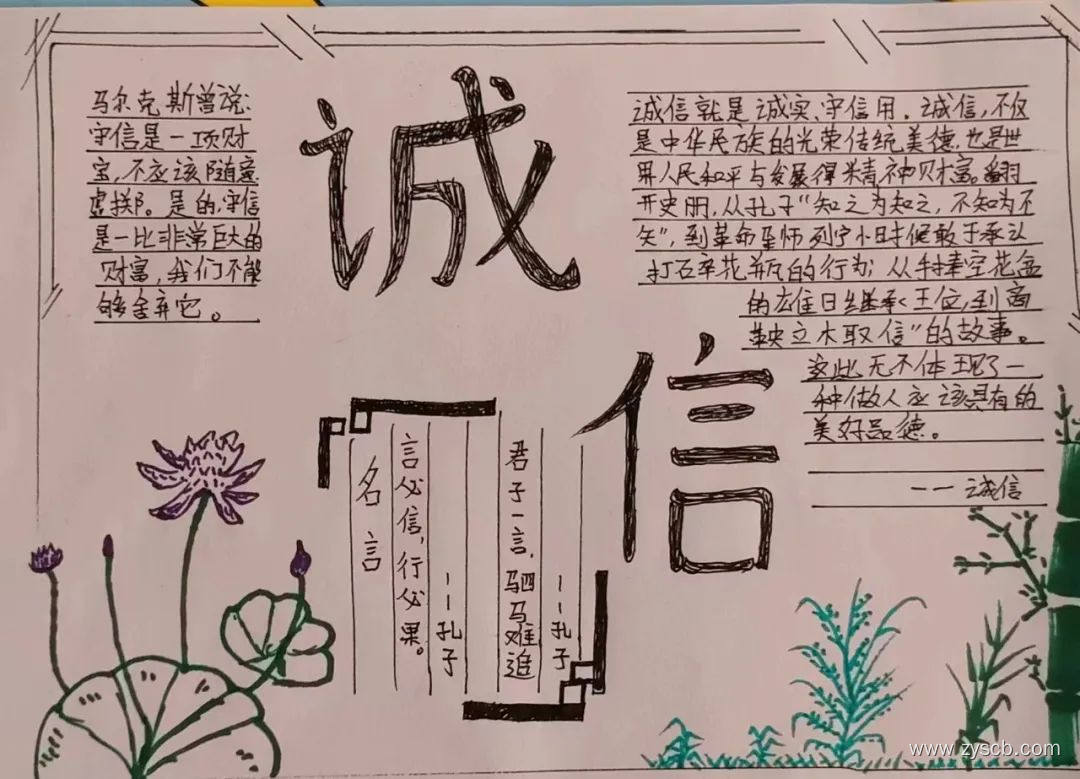 诚
信
马尔克斯曾说:
守信是一项财
宝,不应该随意
虚掷。是的,守信
是一比非常巨大的
财富,我们不能
够舍弃它。
诚信就是诚实、守信用。诚信,不仅
是中华民族的光荣传统美德,也是世
界人民和平与发展得精神财富。翻
开史册,从孔子“知之为知之,不知为不
知”,到革命导师列宁小时候敢于承认
打碎花瓶的行为;从手捧空花盆
的雄日继承王位,到商
鞅立木取信”的故事。
这些无不体现了一
种做人应该具有的
美好品德。
——诚信
名言
言必信,行必果。
——孔子
君子一言,驷马难追
——孔子
www.zyscb.com